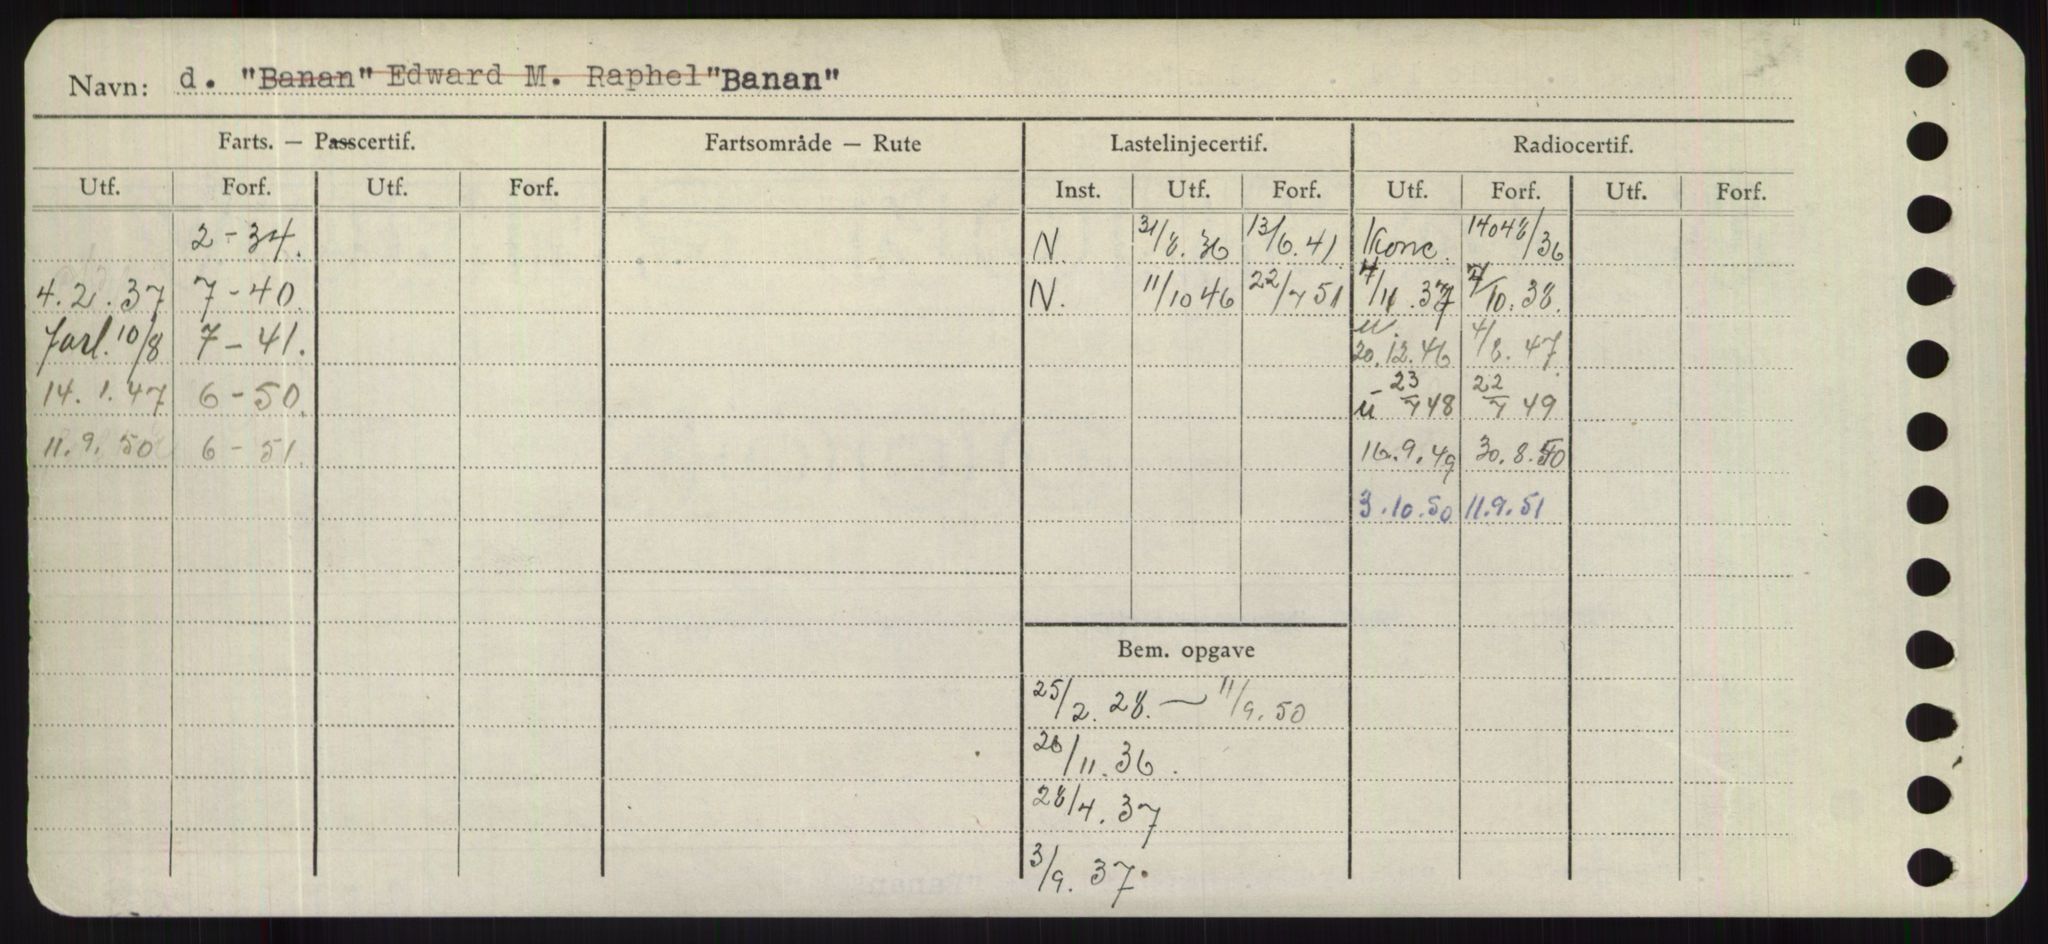 Navn: d. "Banan" Edward M. Raphel "Banan"
Farts. — Passcertif. Fartsområde — Rute Lastelinjecertif. Radiocertif.
Utf. Forf. Utf. Forf. Inst. Utf. Forf. Utf. Forf. Utf. Forf.
2 - 34. N. 31/8. 36 13/6. 41 Konc. 14048/36
4. 2. 37 7 - 40. N. 11/10 46 22/7 51 4/11. 37 7/10. 38.
forl. 10/8 7 - 41. 20. 12. 46 4/8. 47
14. 1. 47 6 - 50. u 23/7 48 22/7 49
11. 9. 50 6 - 51. 16. 9. 49 30. 8. 50
3. 10. 50 11. 9. 51
Bem. opgave
25/2. 28. — 11/9. 50
26/11. 36.
28/4. 37
3/9. 37.